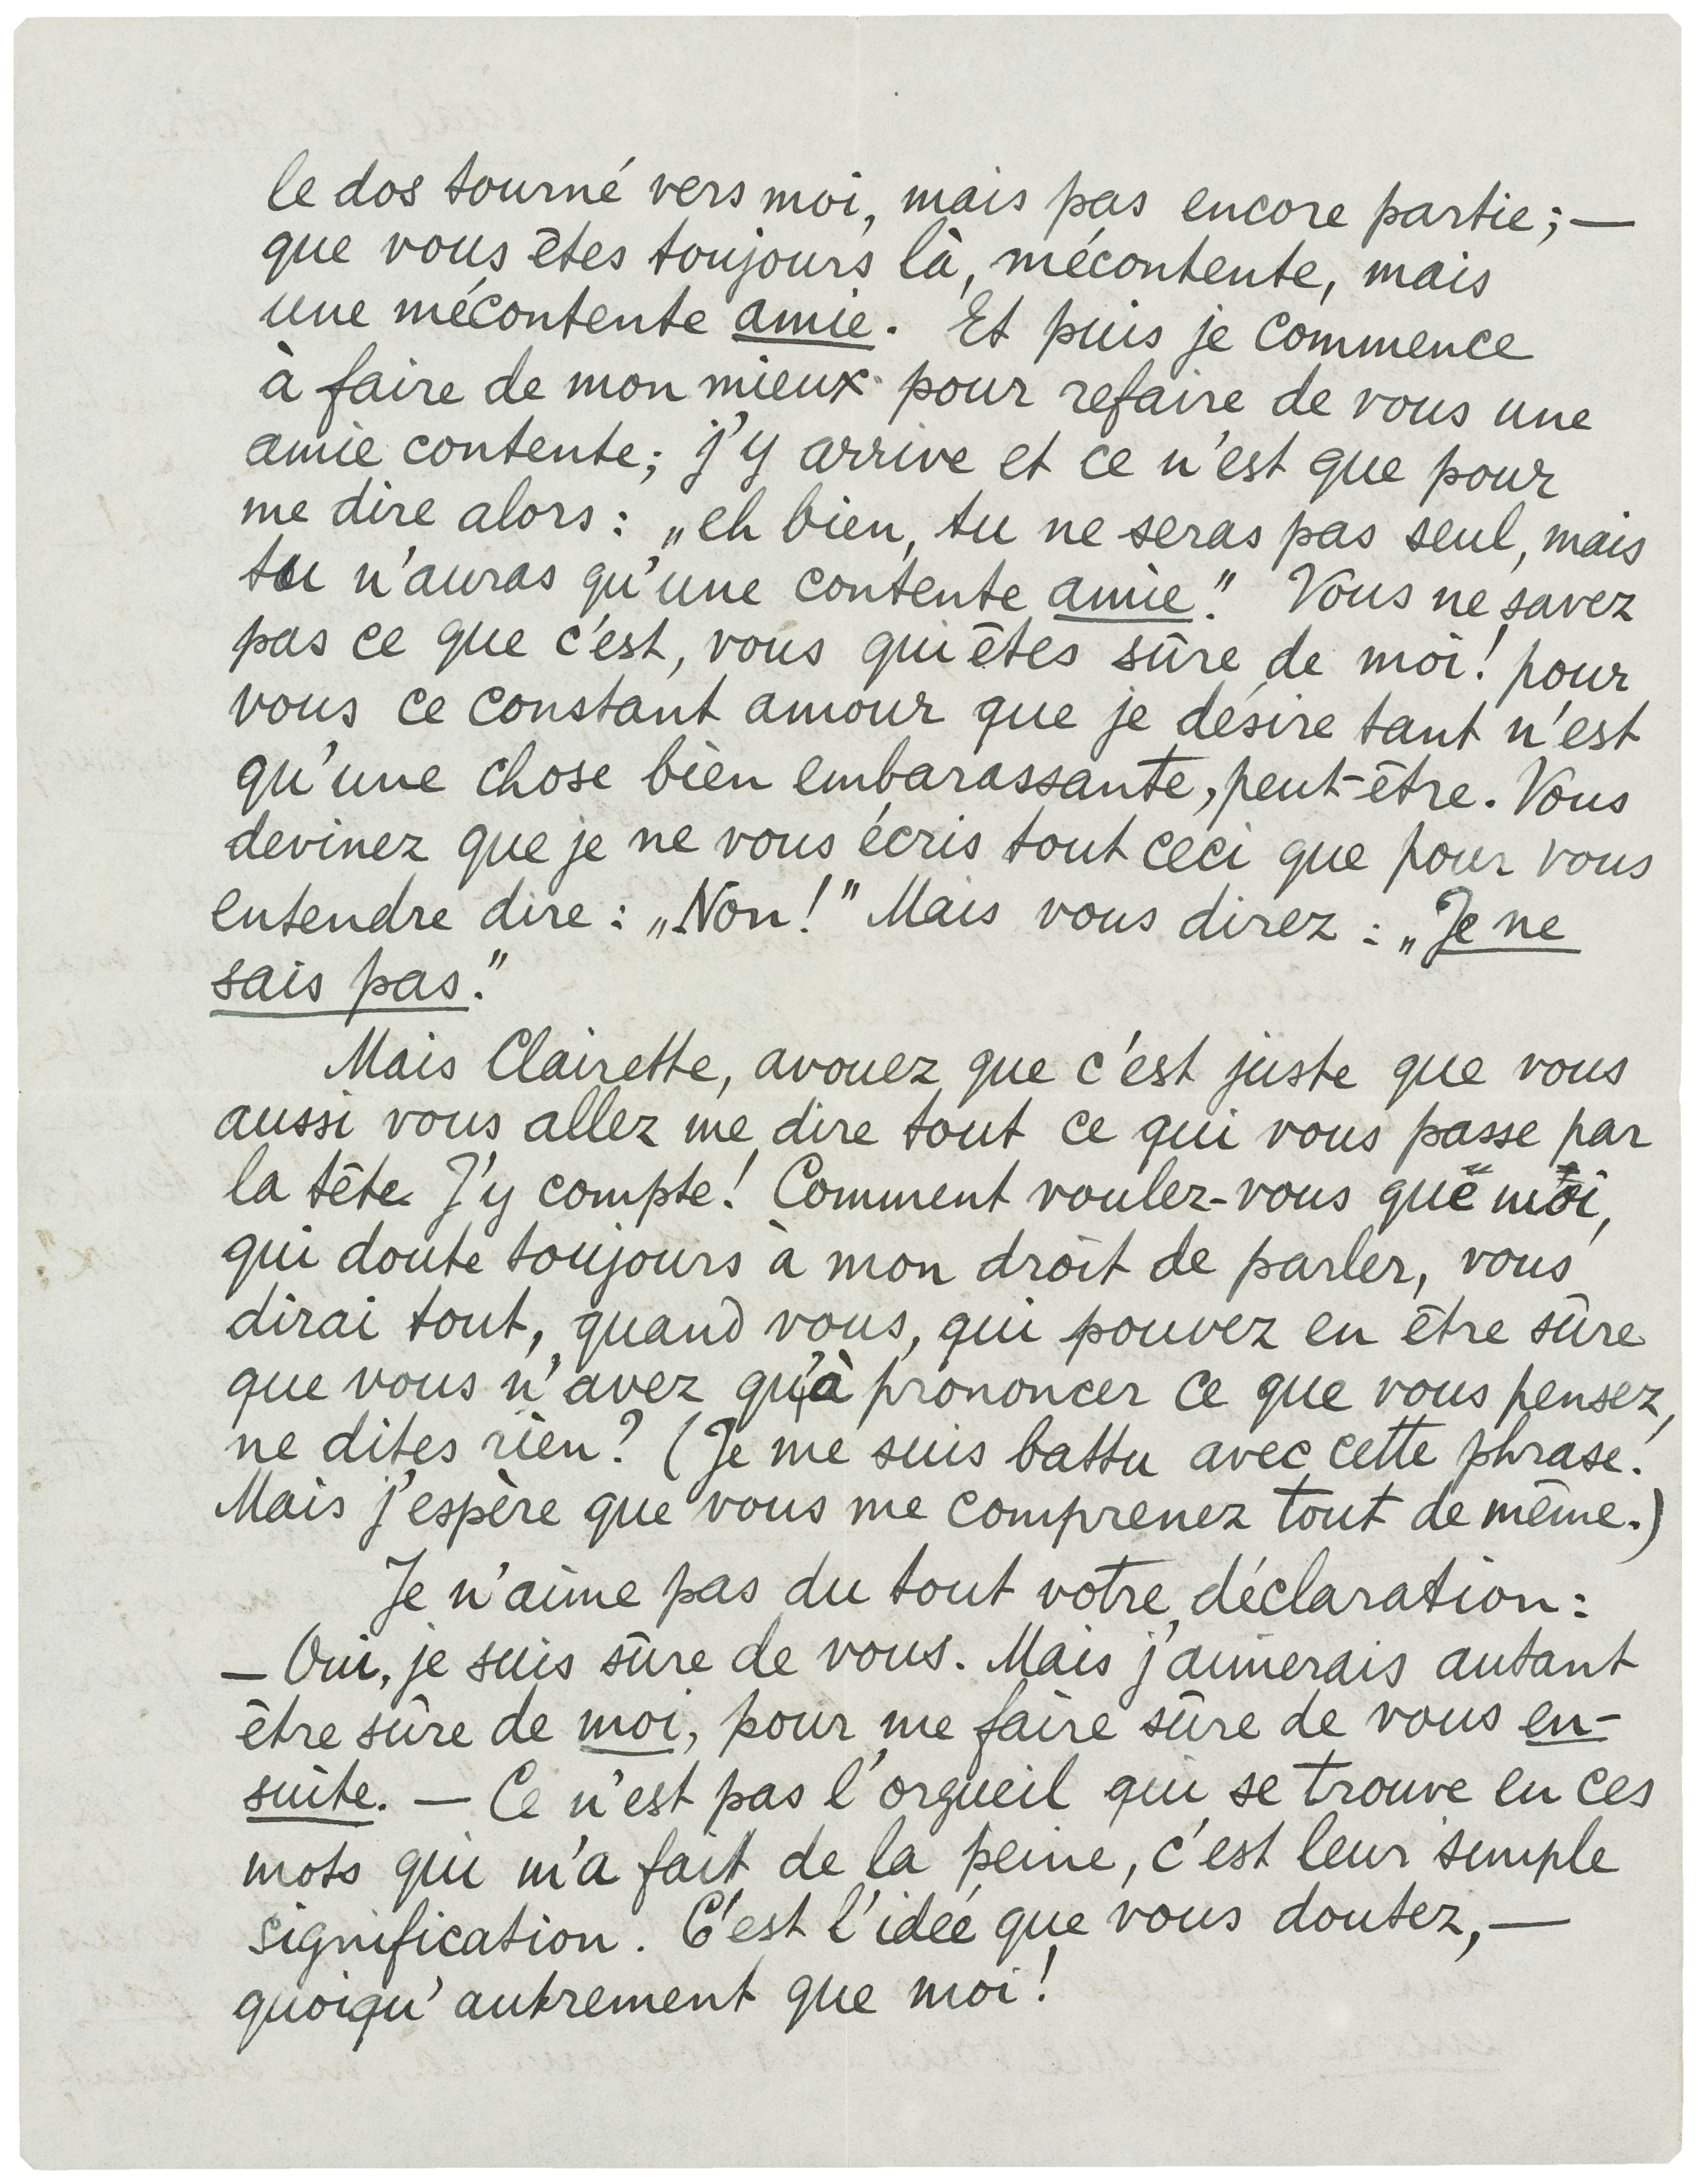 le dos tourné vers moi, mais pas encore partie; —
que vous êtes toujours là, mécontente, mais
une mécontente amie. Et puis je commence
à faire de mon mieux pour refaire de vous une
amie contente; j'y arrive et ce n'est que pour
me dire alors : „eh bien, tu ne seras pas seul, mais
tu n'auras qu'une contente amie." Vous ne savez
pas ce que c'est, vous qui êtes sûre de moi! pour
vous ce constant amour que je désire tant n'est
qu'une chose bien embarassante, peut-être. Vous
devinez que je ne vous écris tout ceci que pour vous
entendre dire : „Non!" Mais vous direz : „Je ne
sais pas."
Mais Clairette, avouez que c'est juste que vous
aussi vous allez me dire tout ce qui vous passe par
la tête. J'y compte! Comment voulez-vous que moi,
qui doute toujours à mon droit de parler, vous
dirai tout, quand vous, qui pouvez en être sûre
que vous n'avez qu'à prononcer ce que vous pensez,
ne dites rien? (Je me suis battu avec cette phrase!
Mais j'espère que vous me comprenez tout de même.)
Je n'aime pas du tout votre déclaration:
— Oui, je suis sûre de vous. Mais j'aimerais autant
être sûre de moi, pour me faire sûre de vous en-
suite. — Ce n'est pas l'orgueil qui se trouve en ces
mots qui m'a fait de la peine, c'est leur simple
signification. C'est l'idée que vous doutez, —
quoiqu'autrement que moi!